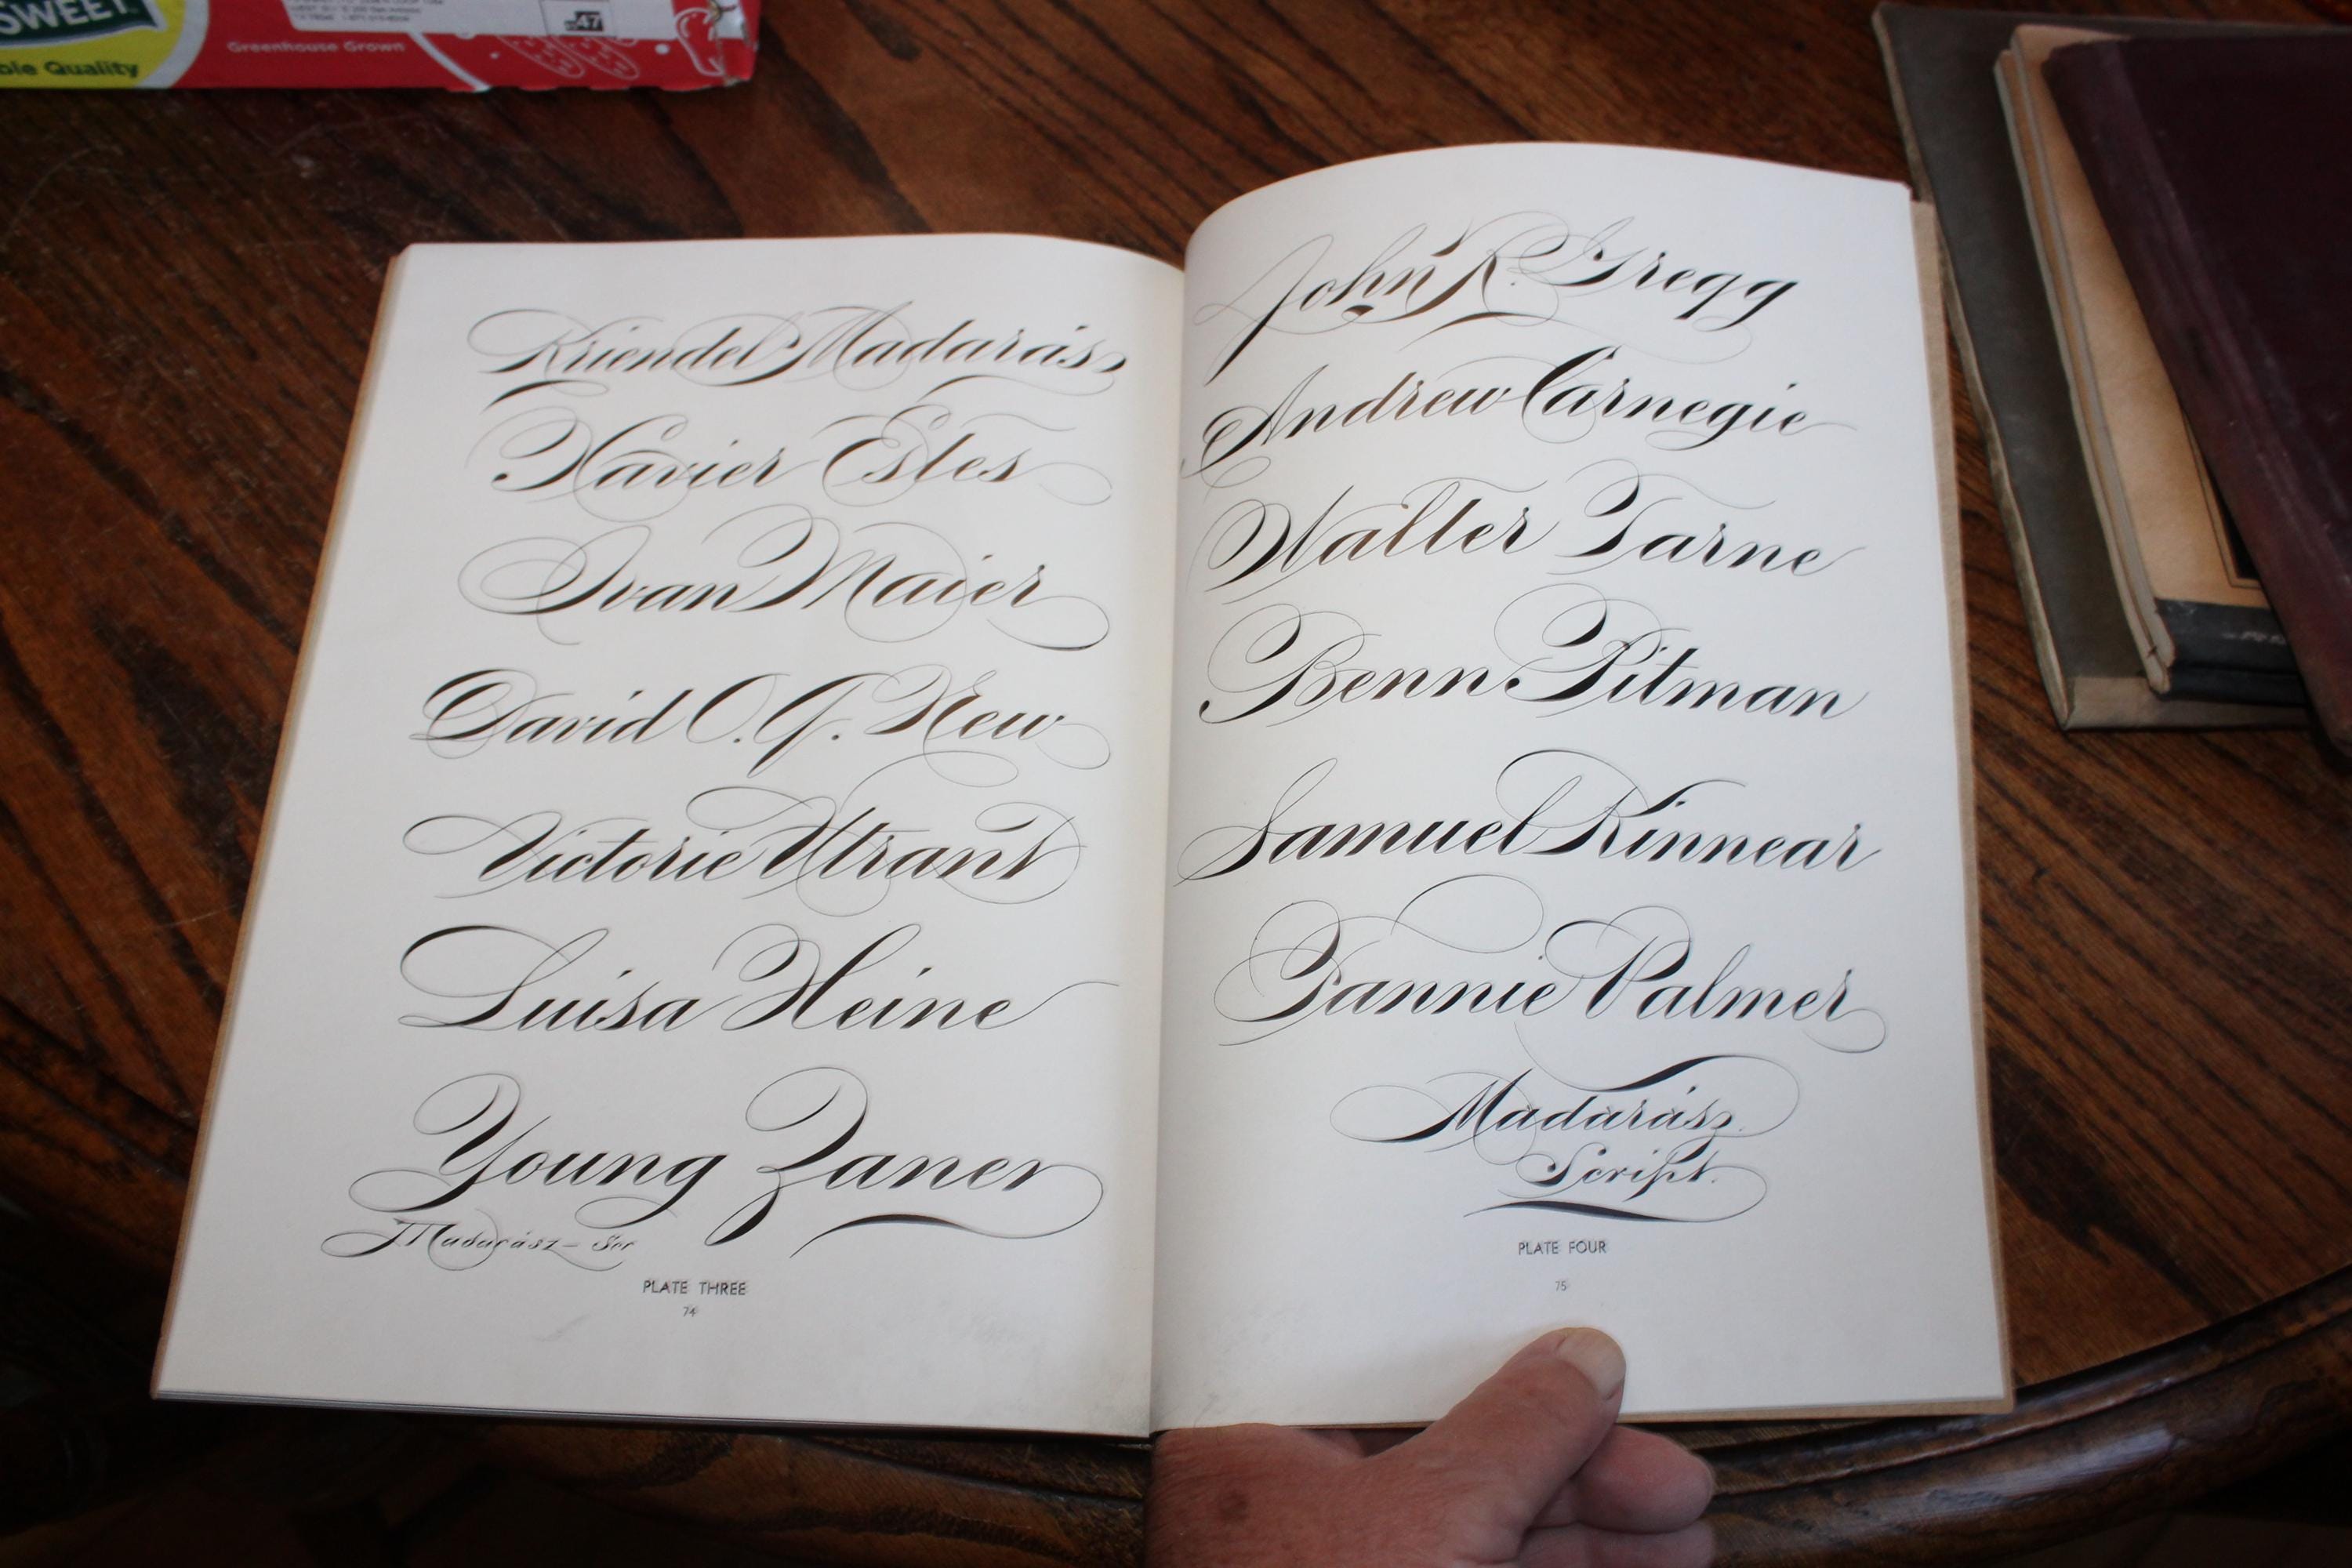 SWEET
ble Quality
Greenhouse Grown
47
Kriendel Madarász
Xavier Estes
Ivan Maier
David O. Q. New
Victorie Utrant
Luisa Heine
Young Zaner
Madarász – Scr
PLATE THREE
74
John R. Gregg
Andrew Carnegie
Walter Tarne
Benn Pitman
Samuel Kinnear
Fannie Palmer
Madarász
Script.
PLATE FOUR
75